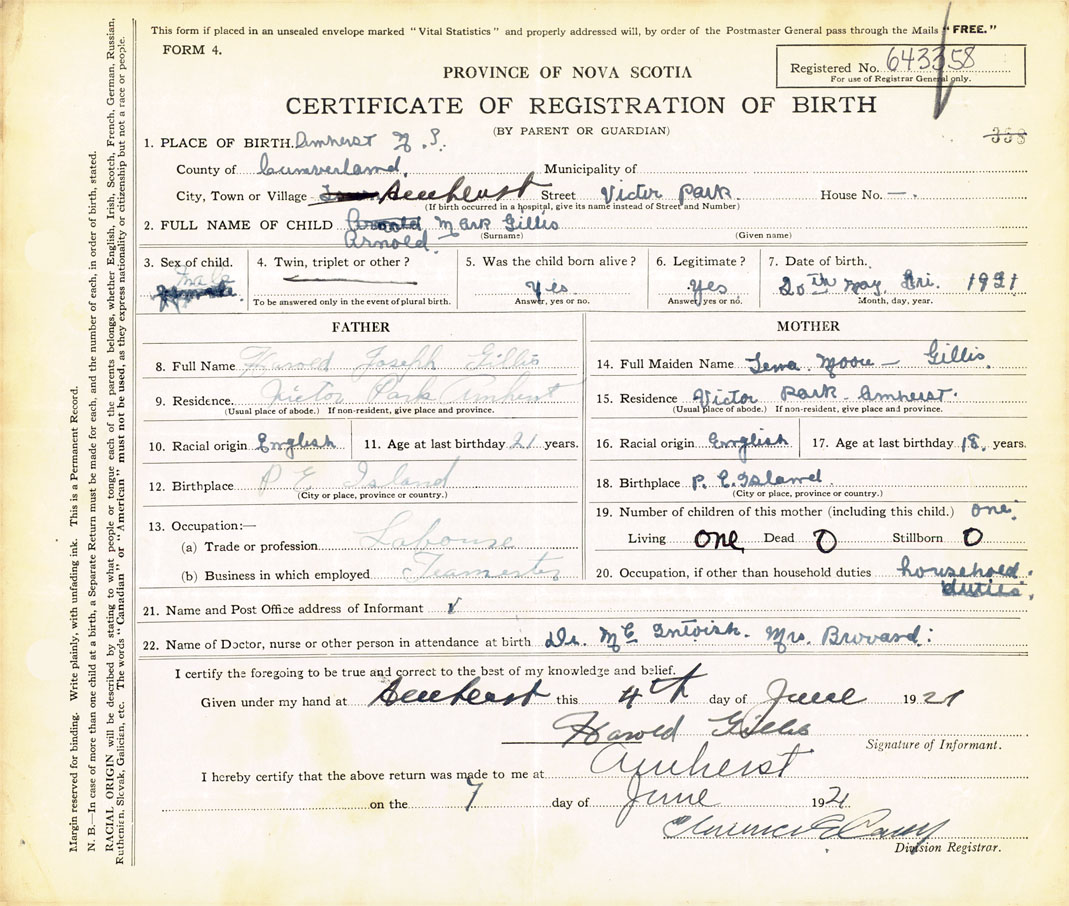 This form if placed in an unsealed envelope marked "Vital Statistics" and properly addressed will, by order of the Postmaster General pass through the Mails "FREE."
FORM 4.
PROVINCE OF NOVA SCOTIA
Registered No. 643358
For use of Registrar General only.
CERTIFICATE OF REGISTRATION OF BIRTH
(BY PARENT OR GUARDIAN)
358
1. PLACE OF BIRTH. Amherst N.S.
County of Cumverland. Municipality of
City, Town or Village Amherst Street Victor Park House No. —.
(If birth occurred in a hospital, give its name instead of Street and Number)
2. FULL NAME OF CHILD Arnold Mark Gillis
Arnold (Surname) (Given name)
3. Sex of child. 4. Twin, triplet or other? 5. Was the child born alive? 6. Legitimate? 7. Date of birth.
male female — Yes. Yes 20th May, Fri. 1921
To be answered only in the event of plural birth. Answer, yes or no. Answer, yes or no. Month, day, year.
FATHER
8. Full Name Harold Joseph Gillis
9. Residence. Victor Park Amherst
(Usual place of abode.) If non-resident, give place and province.
10. Racial origin English 11. Age at last birthday 21 years.
12. Birthplace P E Island
(City or place, province or country.)
13. Occupation:—
(a) Trade or profession Labourer
(b) Business in which employed Teamster
MOTHER
14. Full Maiden Name Moore — Gillis
15. Residence Victor Park - Amherst.
(Usual place of abode.) If non-resident, give place and province.
16. Racial origin English 17. Age at last birthday 18. years.
18. Birthplace P. E. Island.
(City or place, province or country.)
19. Number of children of this mother (including this child.) one.
Living One, Dead 0 Stillborn 0
20. Occupation, if other than household duties household.
duties.
21. Name and Post Office address of Informant
22. Name of Doctor, nurse or other person in attendance at birth Dr. Mc Intoish. Mrs. Brovard:
I certify the foregoing to be true and correct to the best of my knowledge and belief.
Given under my hand at Amherst this 4th day of June 1921
Harold Gillis
Signature of Informant.
I hereby certify that the above return was made to me at Amherst
on the 7 day of June 1921
Clarence E Casey
Division Registrar.
Margin reserved for binding. Write plainly, with unfading ink. This is a Permanent Record.
N. B.—In case of more than one child at a birth, a Separate Return must be made for each, and the number of each, in order of birth, stated.
RACIAL ORIGIN will be described by stating to what people or tongue each of the parents belongs, whether English, Irish, Scotch, French, German, Russian,
Ruthenian, Slovak, Galician, etc. The words "Canadian" or "American" must not be used, as they express nationality or citizenship but not a race or people.